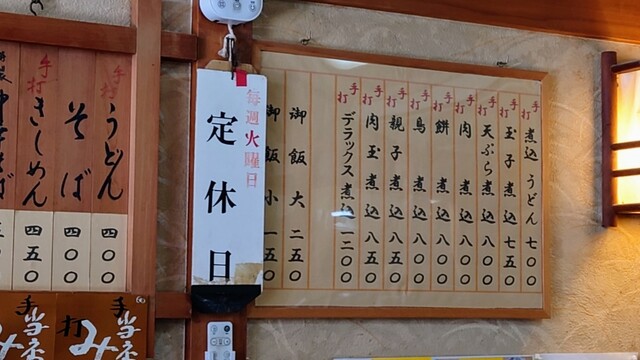 手打 煮込うどん 七〇〇
手打 玉子煮込 七五〇
手打 天ぷら煮込 八〇〇
手打 肉煮込 八〇〇
手打 餅煮込 八〇〇
手打 鳥煮込 八〇〇
手打 親子煮込 八五〇
手打 肉玉煮込 八五〇
手打 デラックス煮込 一二〇〇
御飯大 二五〇
御飯小 一五〇
毎週火曜日
定休日
手打 うどん 四〇〇
そば 四〇〇
手打 きしめん 四五〇